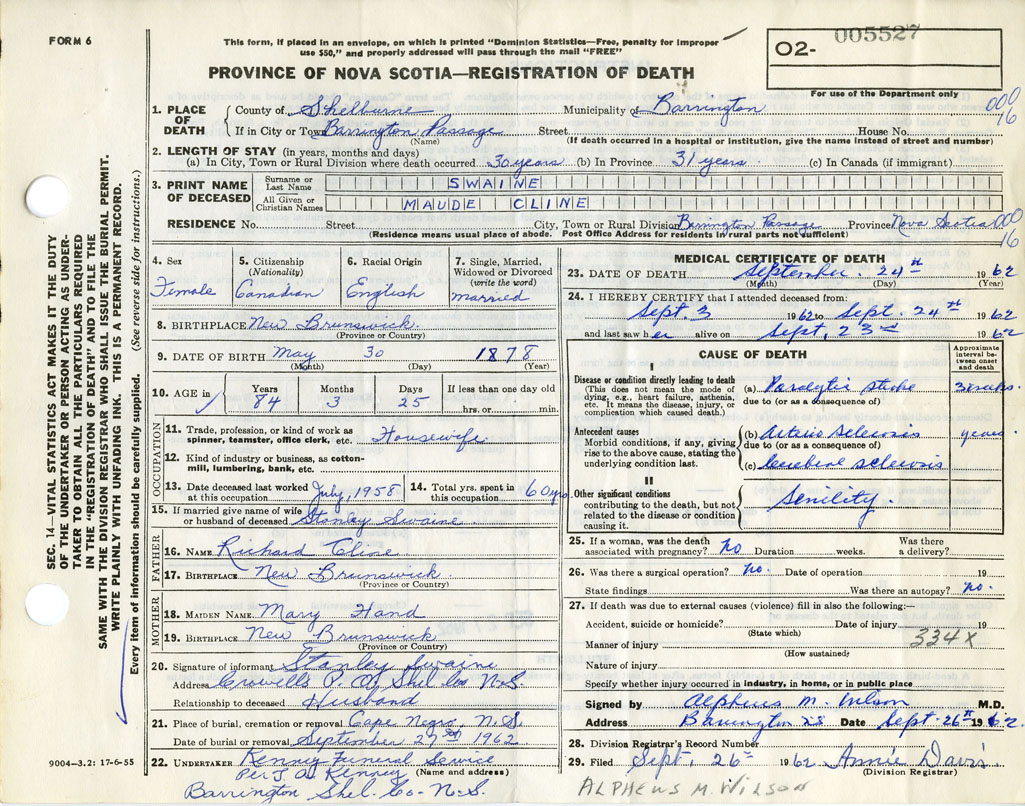 FORM 6
This form, if placed in an envelope, on which is printed "Dominion Statistics—Free, penalty for improper
use $50," and properly addressed will pass through the mail "FREE"
O2- 005527
For use of the Department only
PROVINCE OF NOVA SCOTIA—REGISTRATION OF DEATH
SEC. 14—VITAL STATISTICS ACT MAKES IT THE DUTY
OF THE UNDERTAKER OR PERSON ACTING AS UNDER-
TAKER TO OBTAIN ALL THE PARTICULARS REQUIRED
IN THE "REGISTRATION OF DEATH" AND TO FILE THE
SAME WITH THE DIVISION REGISTRAR WHO SHALL ISSUE THE BURIAL PERMIT.
WRITE PLAINLY WITH UNFADING INK. THIS IS A PERMANENT RECORD.
Every item of information should be carefully supplied. (See reverse side for instructions.)
1. PLACE OF DEATH County of Shelburne Municipality of Barrington 000
If in City or Town Barrington Passage Street House No. 16
(Name) (If death occurred in a hospital or institution, give the name instead of street and number)
2. LENGTH OF STAY (in years, months and days)
(a) In City, Town or Rural Division where death occurred 30 years (b) In Province 31 years (c) In Canada (if immigrant)
3. PRINT NAME OF DECEASED Surname or Last Name SWAINE
All Given or Christian Names MAUDE CLINE
RESIDENCE No. Street City, Town or Rural Division Barrington Passage Province Nova Scotia 000
(Residence means usual place of abode. Post Office Address for residents in rural parts not sufficient) 16
4. Sex Female
5. Citizenship (Nationality) Canadian
6. Racial Origin English
7. Single, Married, Widowed or Divorced (write the word) married
8. BIRTHPLACE New Brunswick
(Province or Country)
9. DATE OF BIRTH May 30 1878
(Month) (Day) (Year)
10. AGE in Years 84 Months 3 Days 25 If less than one day old hrs. or min.
OCCUPATION
11. Trade, profession, or kind of work as spinner, teamster, office clerk, etc. Housewife
12. Kind of industry or business, as cotton-mill, lumbering, bank, etc.
13. Date deceased last worked at this occupation July, 1958
14. Total yrs. spent in this occupation 60 yrs.
15. If married give name of wife or husband of deceased Stanley Swaine
FATHER
16. NAME Richard Cline
17. BIRTHPLACE New Brunswick
(Province or Country)
MOTHER
18. MAIDEN NAME Mary Hand
19. BIRTHPLACE New Brunswick
(Province or Country)
20. Signature of informant Stanley Swaine
Address Crowells P. O. Shel Co N.S.
Relationship to deceased Husband
21. Place of burial, cremation or removal Cape Negro, N.S.
Date of burial or removal September 1962
22. UNDERTAKER Kenney Funeral Service
Per J A Kenney (Name and address)
Barrington Shel. Co- N-S.
9004—3.2: 17-6-55
MEDICAL CERTIFICATE OF DEATH
23. DATE OF DEATH September 24th 1962
(Month) (Day) (Year)
24. I HEREBY CERTIFY that I attended deceased from:
Sept. 3 1962 to Sept. 24th 1962
and last saw her alive on Sept. 23rd 1962
CAUSE OF DEATH
Approximate interval between onset and death
I
Disease or condition directly leading to death
(This does not mean the mode of dying, e.g., heart failure, asthenia, etc. It means the disease, injury, or complication which caused death.)
(a) Paralytic stroke 3 weeks.
due to (or as a consequence of)
Antecedent causes
Morbid conditions, if any, giving rise to the above cause, stating the underlying condition last.
(b) Arterio sclerosis years
due to (or as a consequence of)
(c) Cerebral sclerosis
II
Other significant conditions
contributing to the death, but not related to the disease or condition causing it.
Senility.
25. If a woman, was the death associated with pregnancy? no Duration weeks. Was there a delivery?
26. Was there a surgical operation? no. Date of operation 19
State findings Was there an autopsy? no.
27. If death was due to external causes (violence) fill in also the following:—
Accident, suicide or homicide? Date of injury 19
(State which)
334X
Manner of injury
(How sustained)
Nature of injury
Specify whether injury occurred in industry, in home, or in public place
Signed by Alpheus M. Wilson M.D.
Address Barrington N.S. Date Sept. 26th 1962
28. Division Registrar's Record Number
29. Filed Sept. 26th 1962 Annie Davis
(Division Registrar)
ALPHEUS M. WILSON